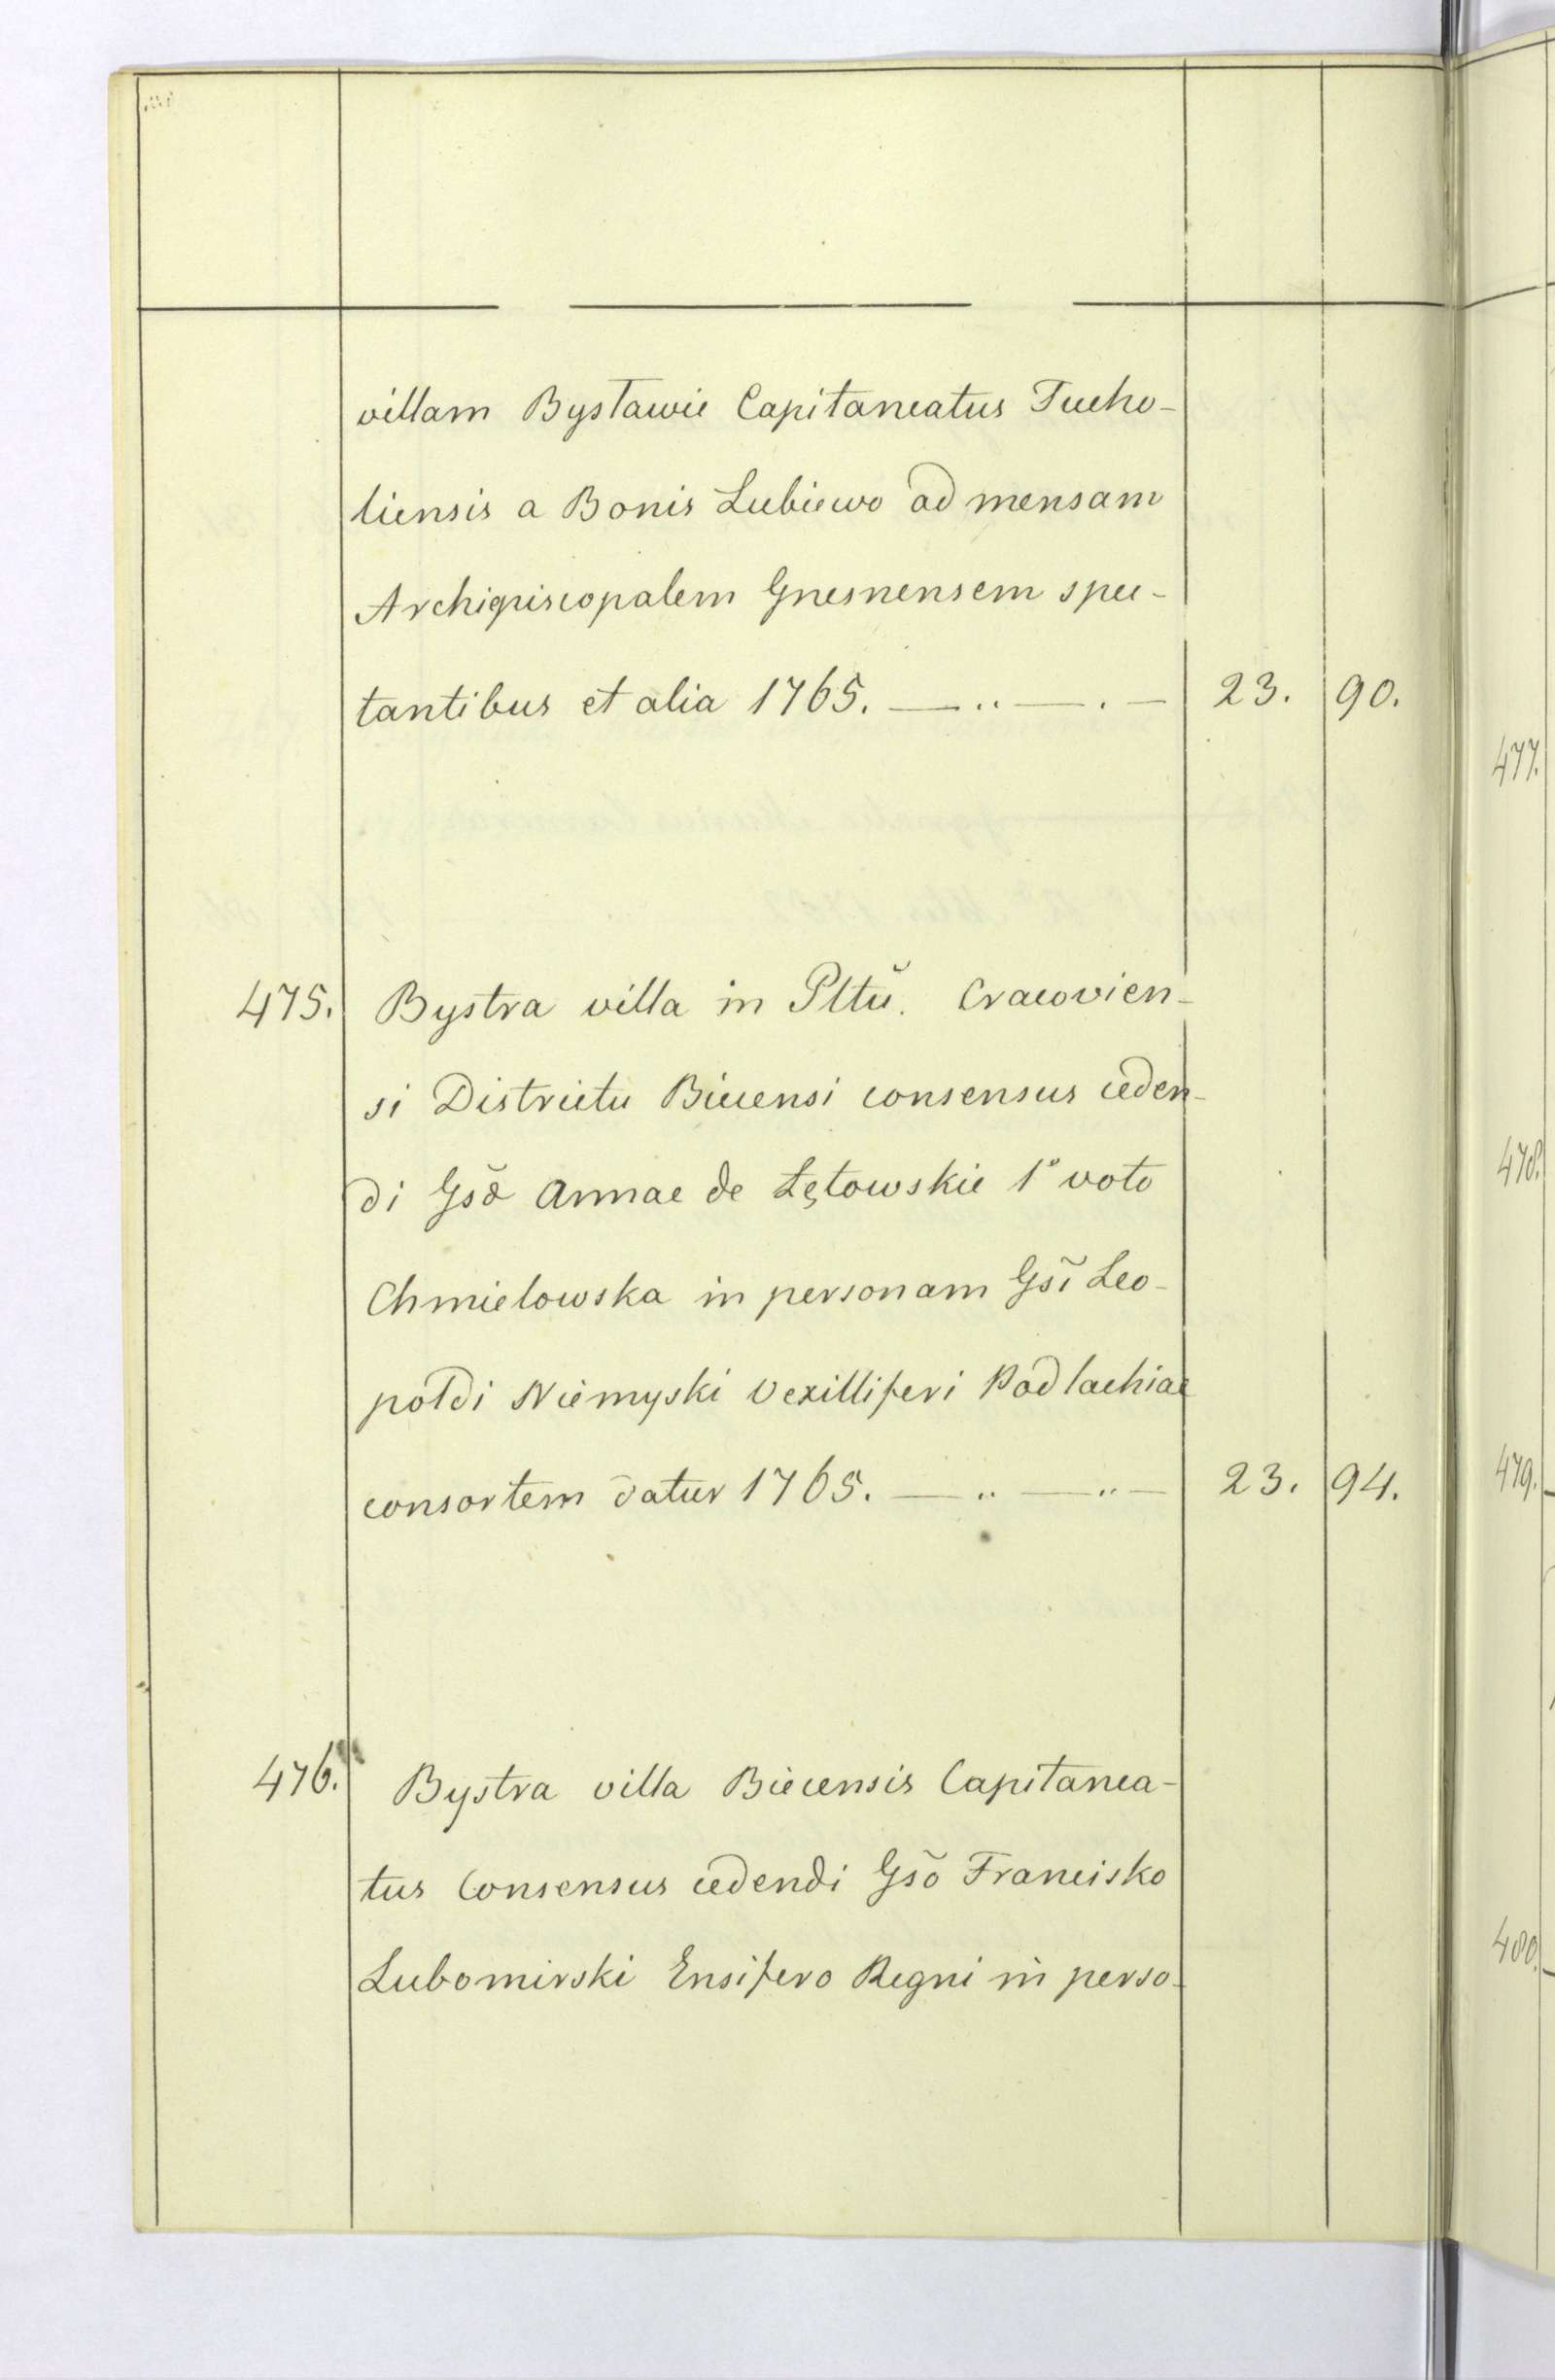 villam Bysławie Capitaneatus Tucho-
liensis a Bonis Lubiewo ad mensam
Archiepiscopalem Gnesnensem spec-
tantibus et alia 1765. 23. 90.
475. Bystra villa in Pltŭ. Cracovien-
si Districtu Biecensi consensus ceden-
di Gsã Annae de Łętowskie 1º voto
Chmielowska in personam Gsĩ Leo-
poldi Niemyski Vexilliferi Podlachiae
consortem datur 1765. 23. 94.
476. Bystra villa Biecensis Capitanea-
tus Consensus cedendi Gsõ Francisko
Lubomirski Ensifero Regni in perso-
477.
478.
479.
480.